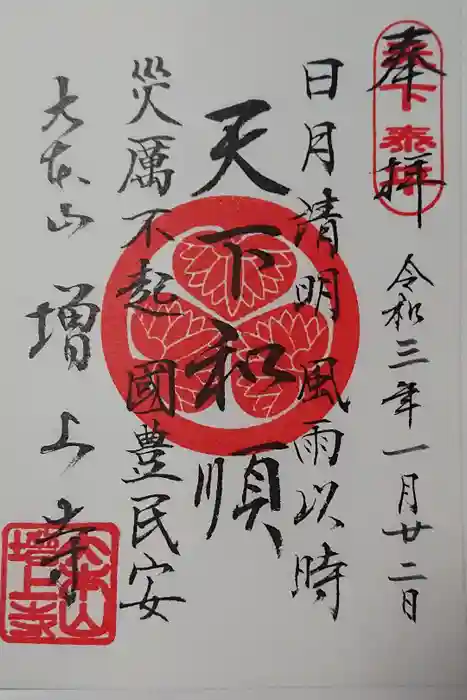 奉拝
天下泰平
令和三年一月廿二日
日月清明 風雨以時
天下和順
災厲不起 國豊民安
大本山 増上寺
大本山増上寺